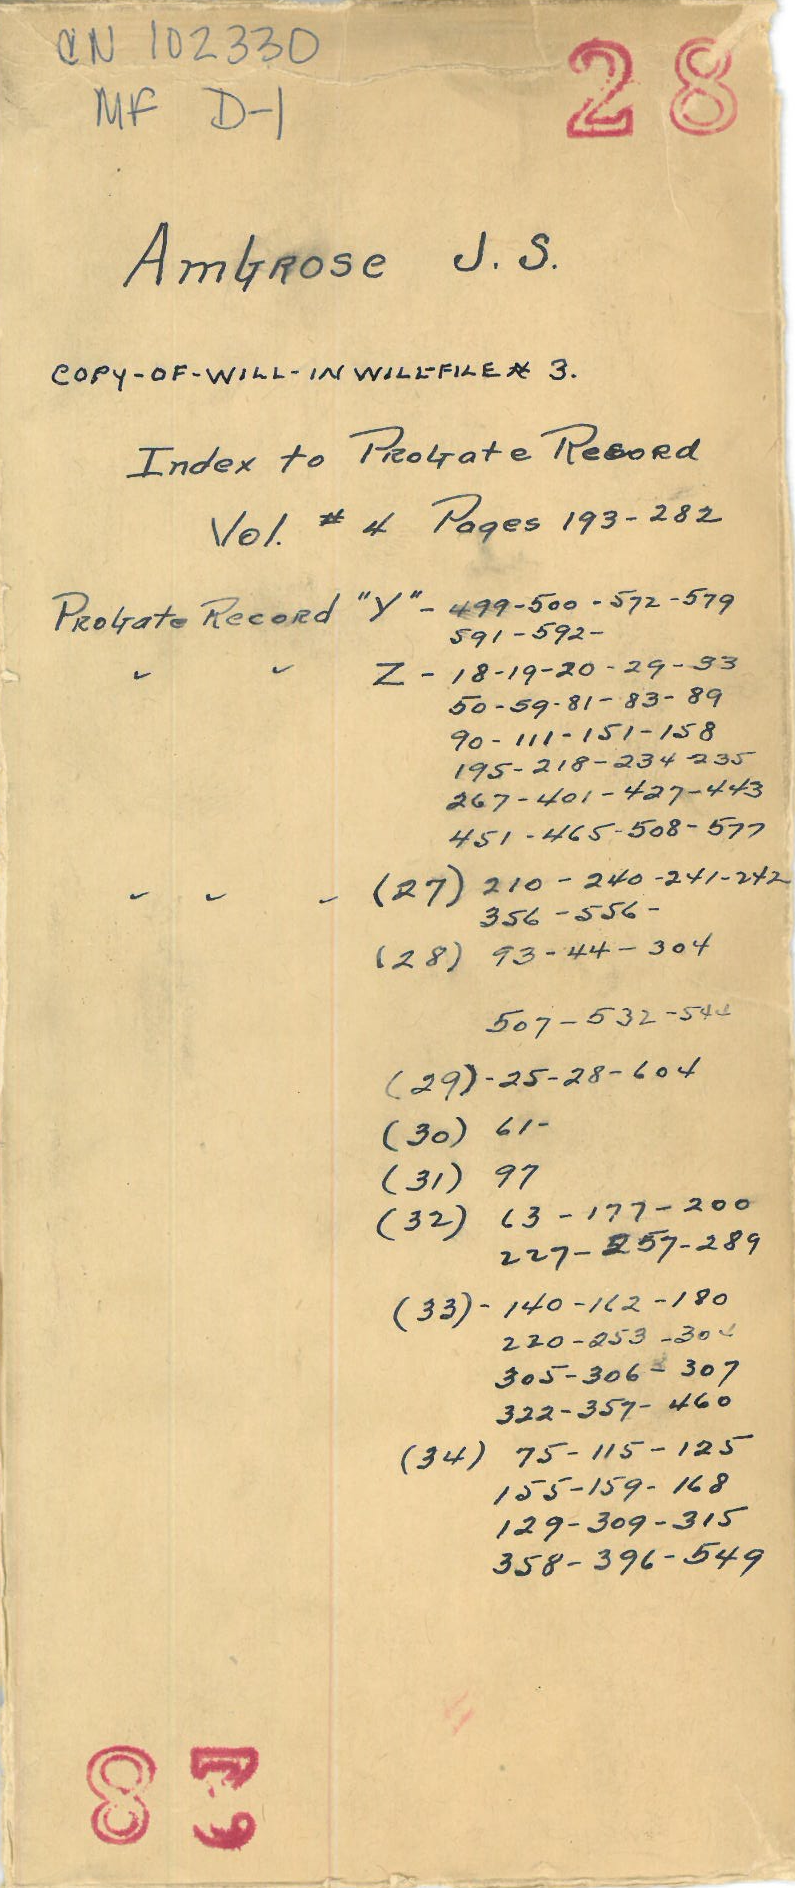 CN 102330
28
MF D-1
Ambrose J.S.
COPY-OF-WILL-IN WILL-FILE # 3.
Index to Probate Record
Vol. # 4 Pages 193-282
Probate Record "Y" - 499-500-572-579
591-592-
✓ ✓ Z - 18-19-20-29-33
50-59-81-83-89
90-111-151-158
195-218-234-235
267-401-427-443
451-465-508-577
✓ ✓ ✓ (27) 210-240-241-242
356-556-
(28) 93-44-304
507-532-544
(29)-25-28-604
(30) 61-
(31) 97
(32) 63-177-200
227-257-289
(33)-140-162-180
220-253-304
305-306-307
322-357-460
(34) 75-115-125
155-159-168
129-309-315
358-396-549
28